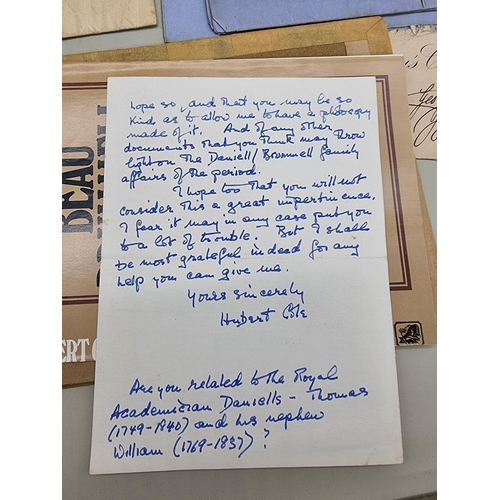 hope so, and that you may be so
kind as to allow me to have a photocopy
made of it. And of any other
documents that you think may throw
light on the Daniell/Brummell family
affairs of the period.
I hope too that you will not
consider this a great impertinence.
I fear it may in any case put you
to a lot of trouble. But I shall
be most grateful indeed for any
help you can give me.
Yours sincerely
Hubert Cole
Are you related to the Royal
Academician Daniells - Thomas
(1749-1840) and his nephew
William (1769-1837)?
BEAU
ERT C